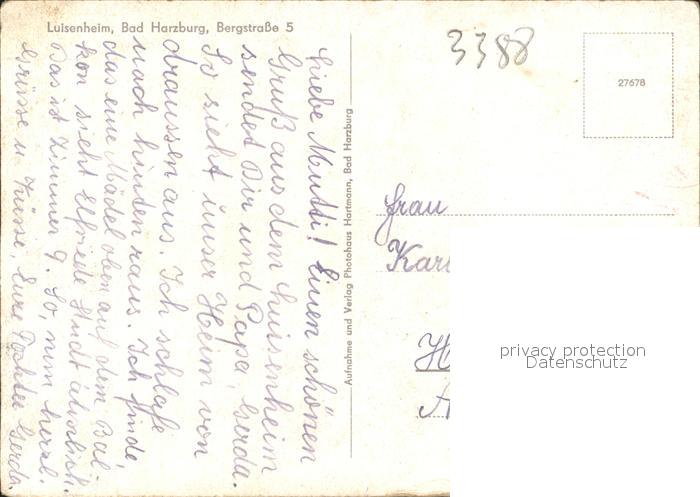 Luisenheim, Bad Harzburg, Bergstraße 5
Liebe Mutti! Einen schönen
Gruß aus dem Luisenheim
sendet Dir und Papa, Gerda.
So sieht unser Heim von
draussen aus. Ich schlafe
nach hinten raus. Ich finde
das eine Mädel oben auf dem Bal-
kon sieht Elfriede ähnlich.
Das ist Zimmer 9. So, nun herzl.
Grüsse u. Küsse, Eure Tochter Gerda.
Aufnahme und Verlag Photohaus Hartmann, Bad Harzburg
3388
27678
Frau
privacy protection
Datenschutz